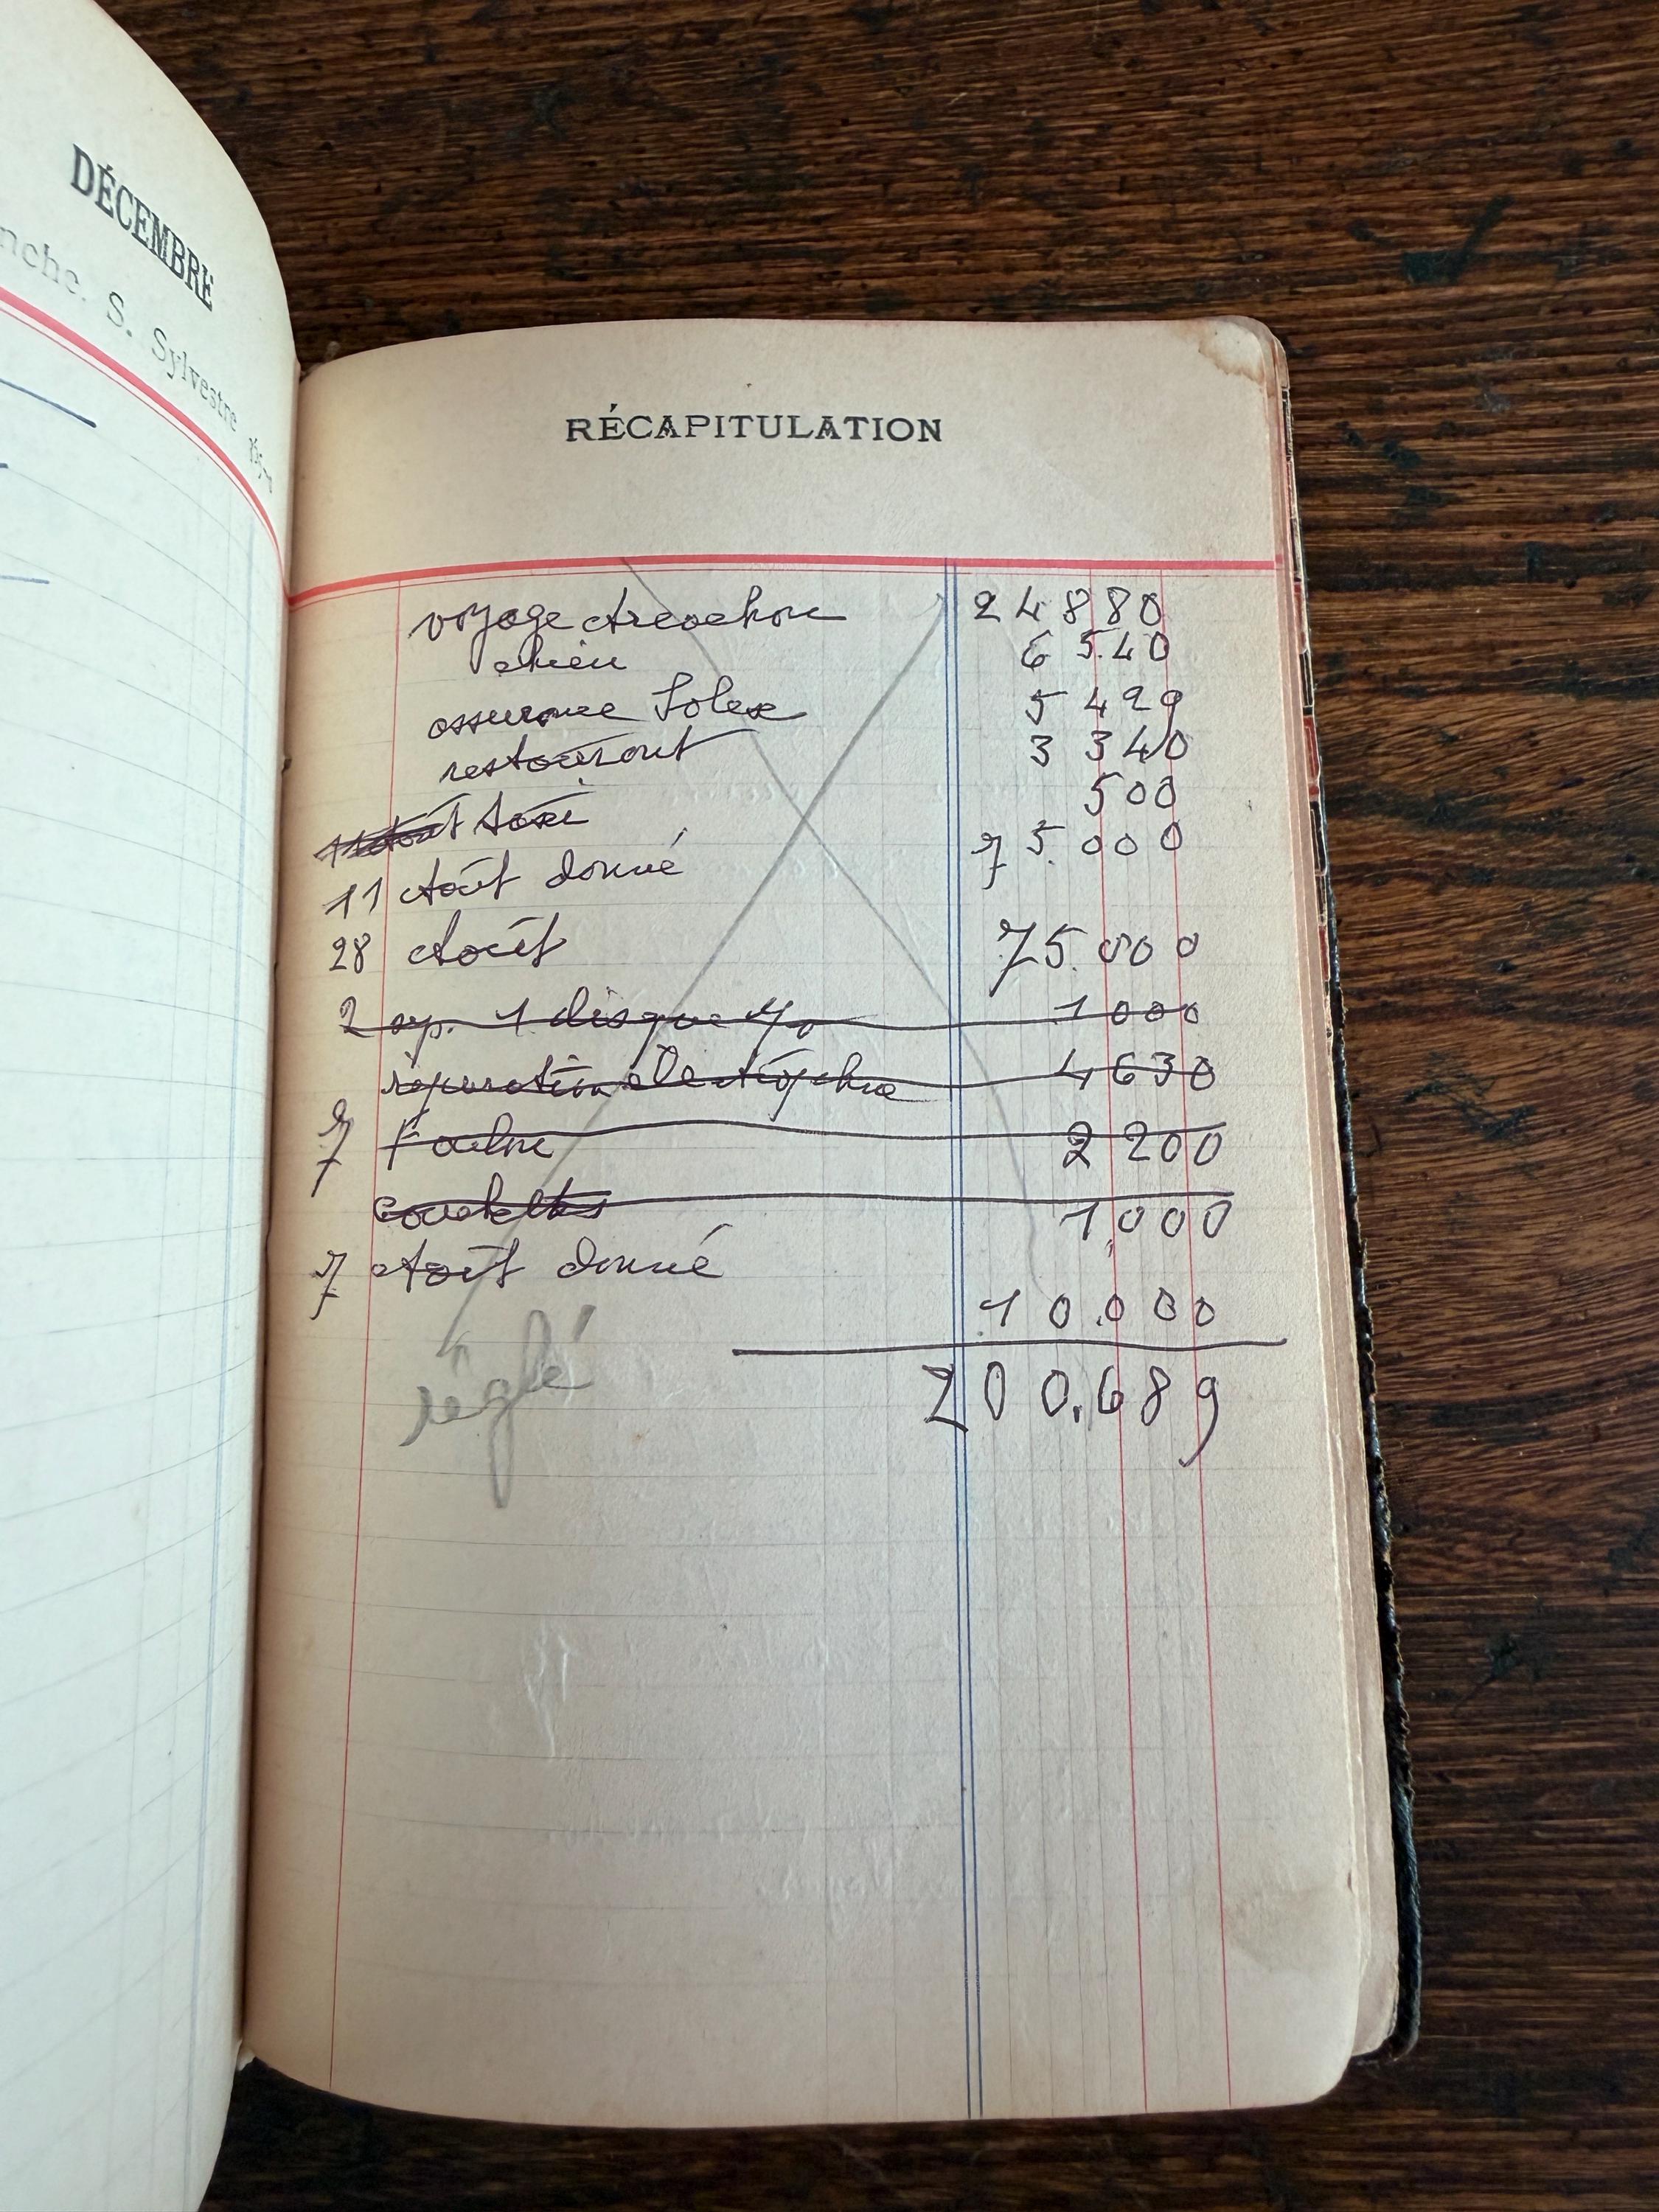 DÉCEMBRE
nche. S. Sylvestre
RÉCAPITULATION
voyage Arcachon 24880
chien 6 5.40
assurance Solex 5 429
restaurant 3 340
11 Août taxi 500
11 Août donné 75.000
28 Août 75.000
2 rp. 1 disque 1000
réparation électrophne 4630
7 2 200
1,000
7 Août donné
10.000
200.689
réglé